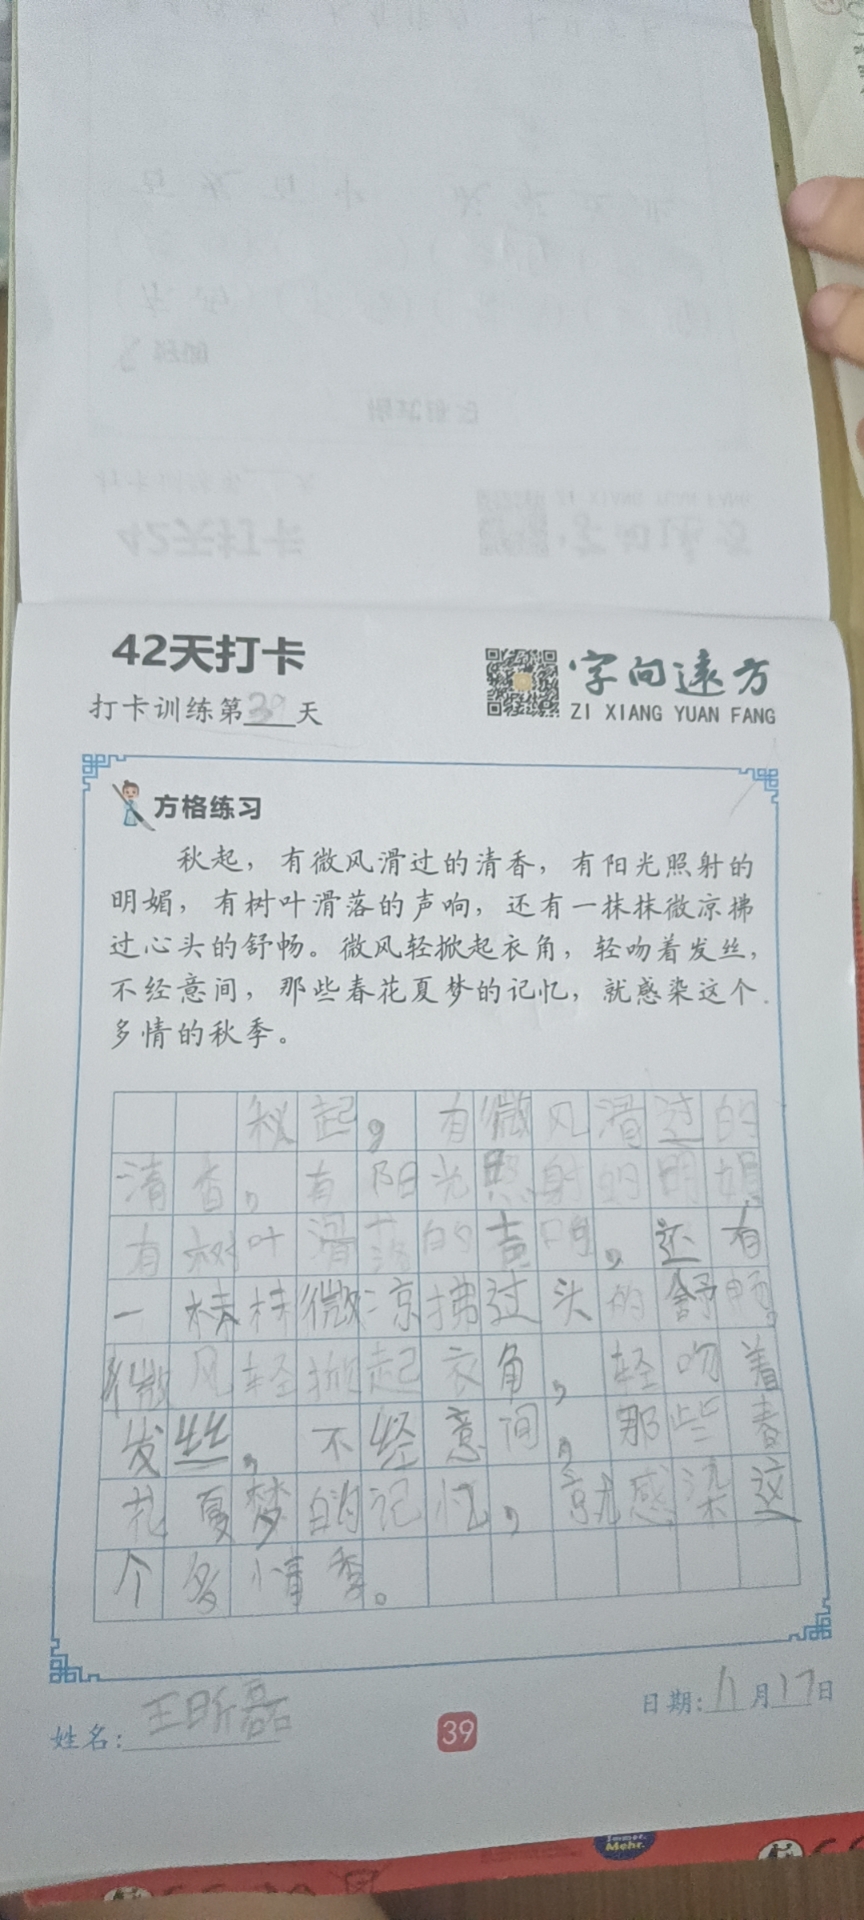 42天打卡
打卡训练第39天
字向遠方
ZI XIANG YUAN FANG
方格练习
秋起，有微风滑过的清香，有阳光照射的
明媚，有树叶滑落的声响，还有一抹抹微凉拂
过心头的舒畅。微风轻掀起衣角，轻吻着发丝，
不经意间，那些春花夏梦的记忆，就感染这个
多情的秋季。
秋起，有微风滑过的
清香，有阳光照射的明媚，
有树叶滑落的声响，还有
一抹抹微凉拂过头的舒畅。
微风轻掀起衣角，轻吻着
发丝，不经意间，那些春
花夏梦的记忆，就感染这
个多情季。
姓名：王昕磊
39
日期：11月17日
Mehr.